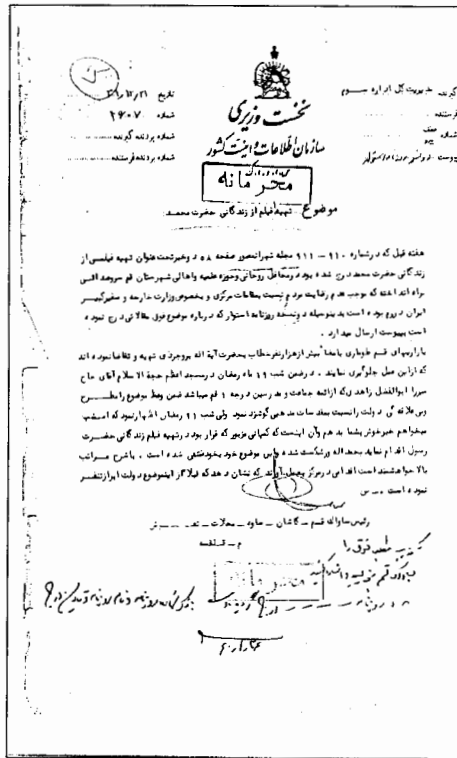 تاریخ
شماره ۲۶۰۷۰
شماره پرونده گیرنده
شماره پرونده فرستنده
نخست وزیری
سازمان اطلاعات و امنیت کشور
گیرنده مدیریت کل اداره سوم
فرستنده
شماره
پیوست
محرمانه
موضوع تهیه فیلم از زندگانی حضرت محمد
هفته قبل که در شماره ۹۱۰ - ۹۱۱ مجله تهرانمصور صفحه ۵۸ دو خبر تحت عنوان تهیه فیلمی از
زندگانی حضرت محمد درج شده بود در محافل روحانی و حوزه علمیه و اهالی شهرستان قم سروصدائی
براه انداخته که موجب عدم رضایت مردم نسبت بمقامات مرکزی و بخصوص وزارت خارجه و سفیر کبیر
ایران در رم بوده است بدینوسیله دو نسخه روزنامه استوار که درباره موضوع فوق مقالاتی درج نموده
است بپیوست ارسال میدارد.
بازاریهای قم طوماری با امضا بیش از هزار نفر خطاب بحضرت آیة اله بروجردی تهیه و تقاضا نموده اند
که از این عمل جلوگیری نمایند. در ضمن شب ۱۹ ماه رمضان در مسجد اعظم حجة الاسلام آقای حاج
میرزا ابوالفضل زاهدی که از ائمه جماعت و مدرسین درجه ۱ قم میباشد ضمن وعظ موضوع را مطرح
و بی علاقه گی دولت را نسبت بمقدسات مذهبی گوشزد نمود ولی شب ۲۱ رمضان اظهار نمود که امشب
میخواهم خبر خوش بشما بدهم و آن اینست که کمپانی مزبور که قرار بود در تهیه فیلم زندگانی حضرت
رسول اقدام نماید بحمداله ورشکست شده و این موضوع خود بخود منتفی شده است. با شرح مراتب
بالا خواهشمند است اقدامی در مرکز بعمل آورند که نشان دهد که قبلا از اینموضوع دولت ابراز تنفر
نموده است. س
رئیس ساواک قم - کاشان - ساوه - محلات
محرمانه